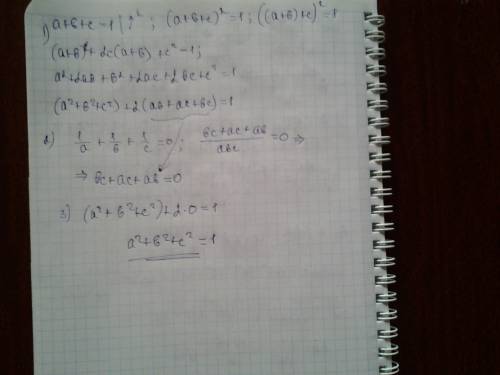 1) a+b+c=1 |↑²; (a+b+c)²=1; ((a+b)+c)²=1
(a+b)²+2c(a+b)+c²=1;
a²+2ab+b²+2ac+2bc+c²=1
(a²+b²+c²)+2(ab+ac+bc)=1
2) 1/a + 1/b + 1/c =0; (bc+ac+ab)/abc =0 ⇒
⇒ bc+ac+ab=0
3) (a²+b²+c²)+2·0=1
a²+b²+c²=1